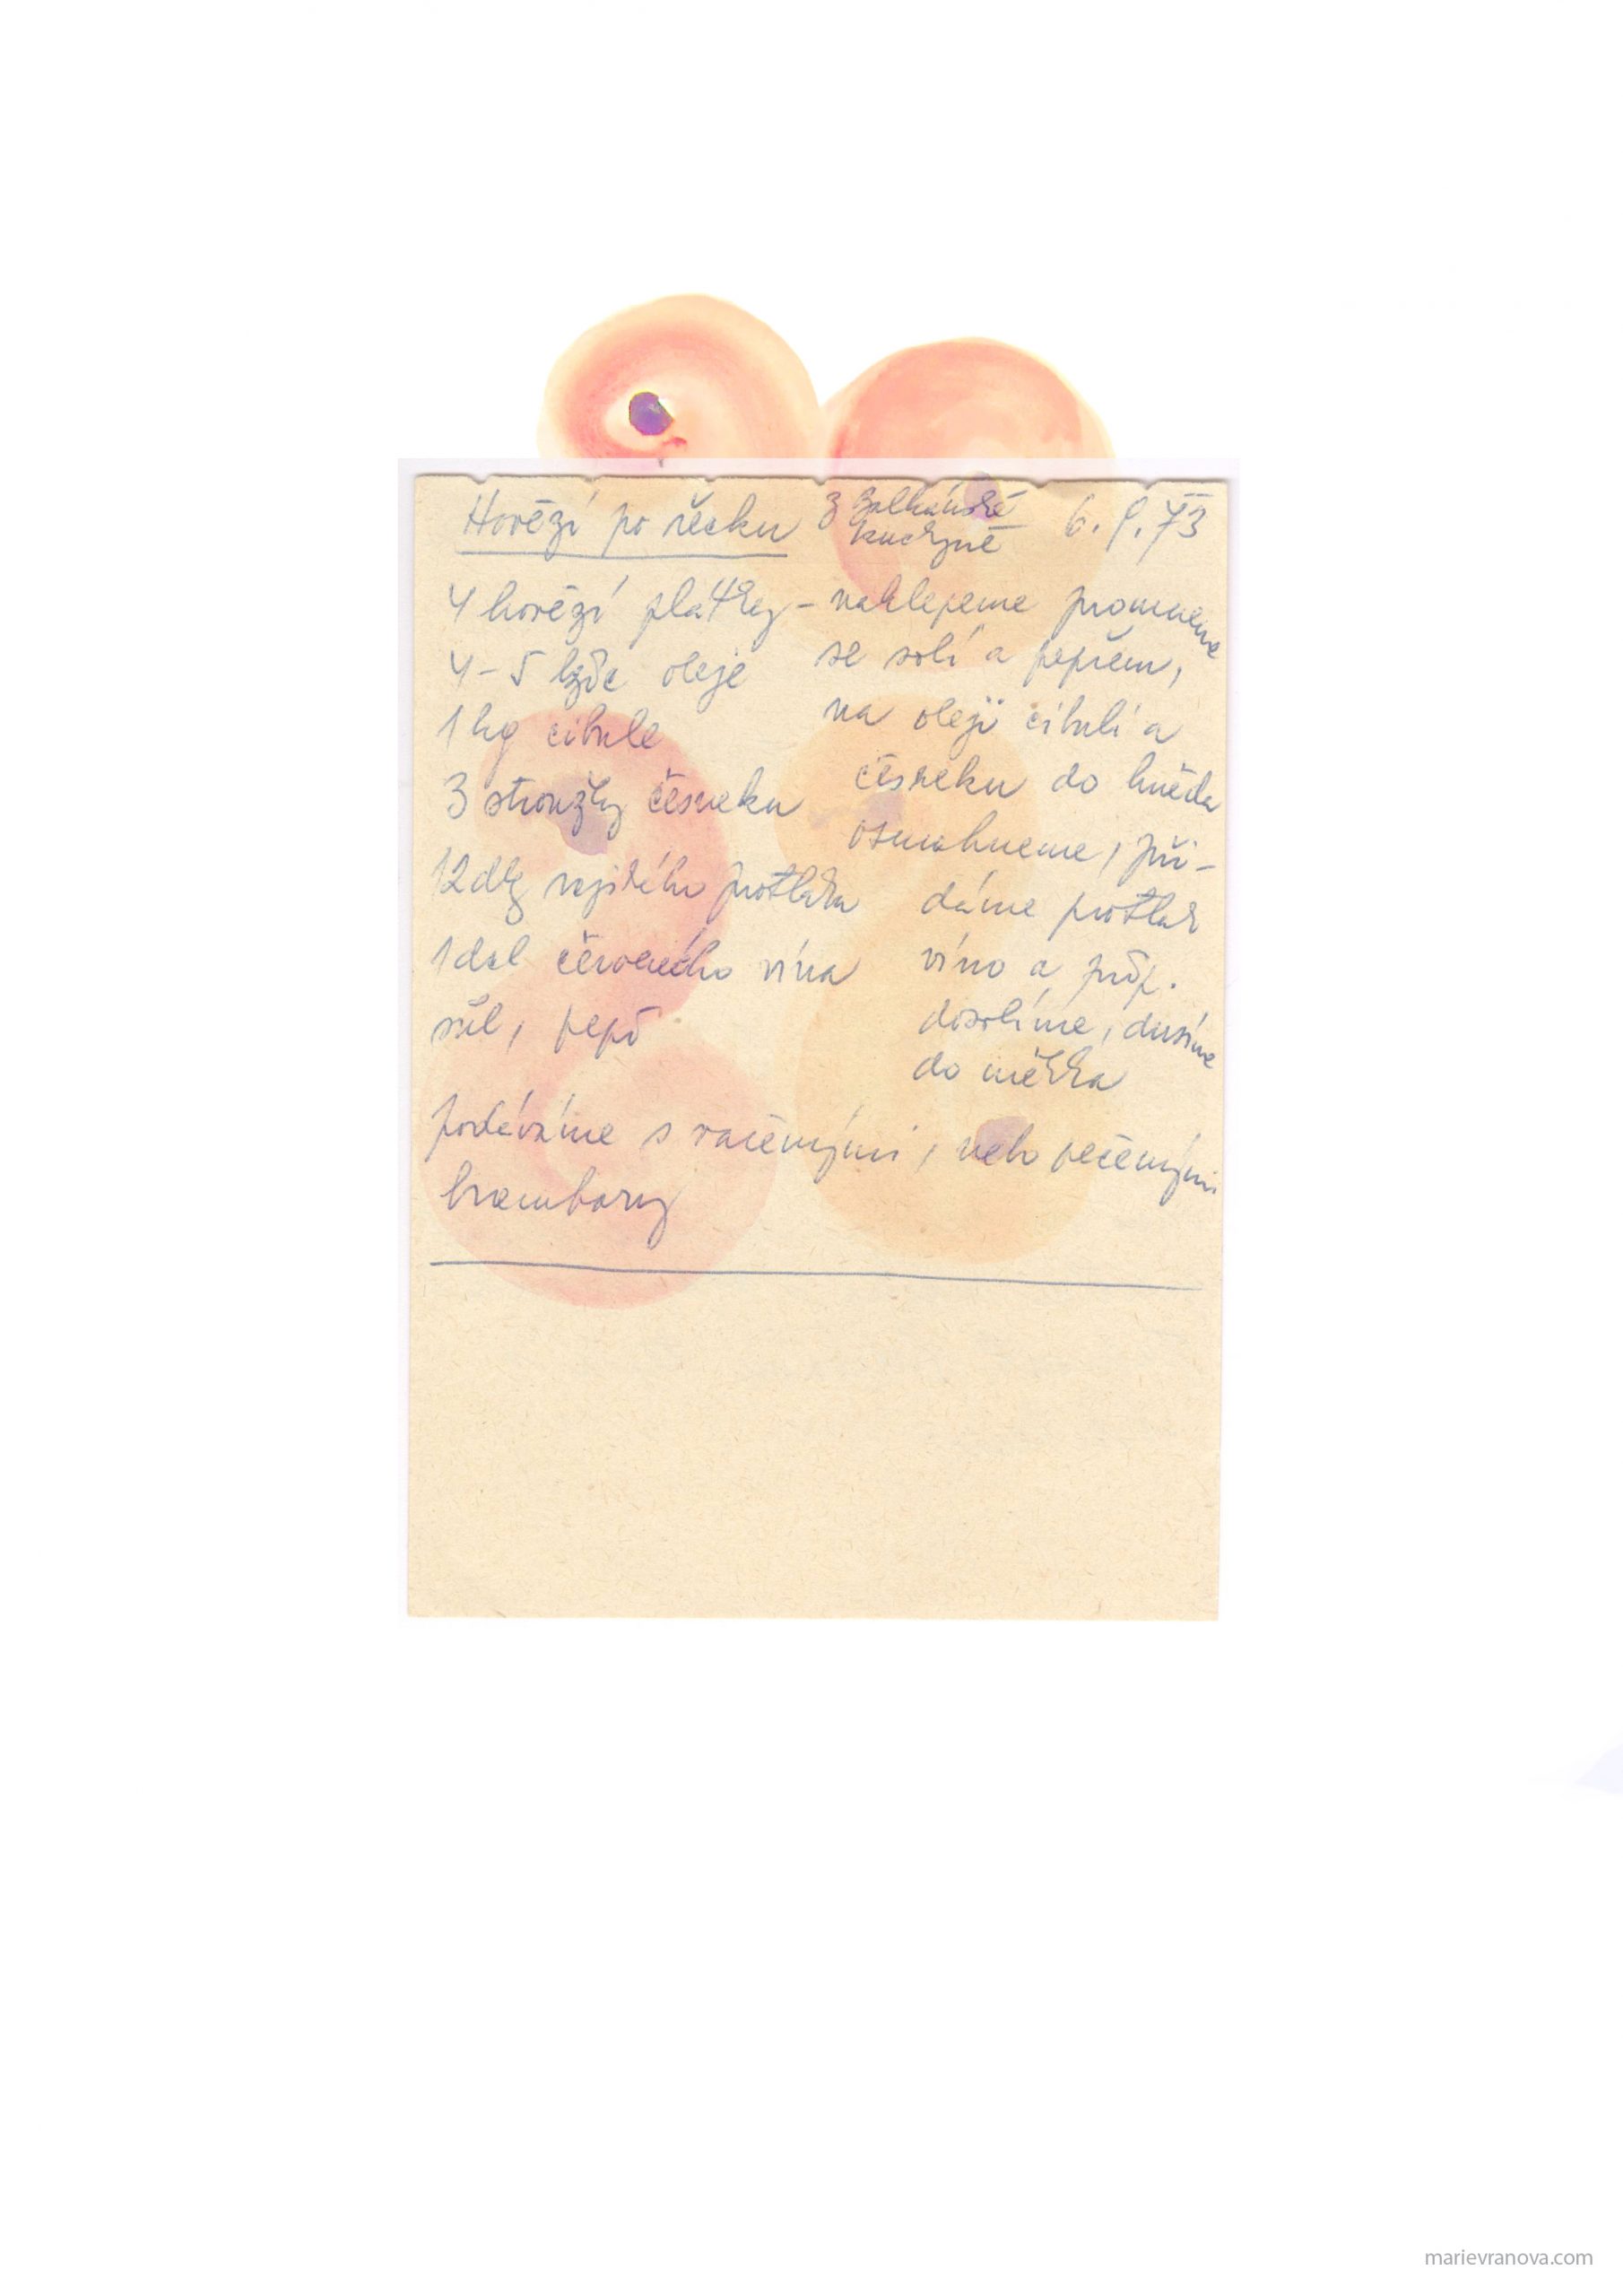 Hovězí po řecku z Balkánské kuchyně 6. 9. 73
4 hovězí plátky - naklepeme promneme
se solí a pepřem,
4-5 lžic oleje
na oleji cibuli a
1 kg cibule
česneku do hněda
3 stroužky česneku
osmahneme, při-
12 dkg rajského protlaku
dáme protlak
1 dcl červeného vína
víno a příp.
sůl, pepř
dosolíme, dusíme
do měkka
podáváme s vařenými, nebo pečenými
brambory
marievranova.com